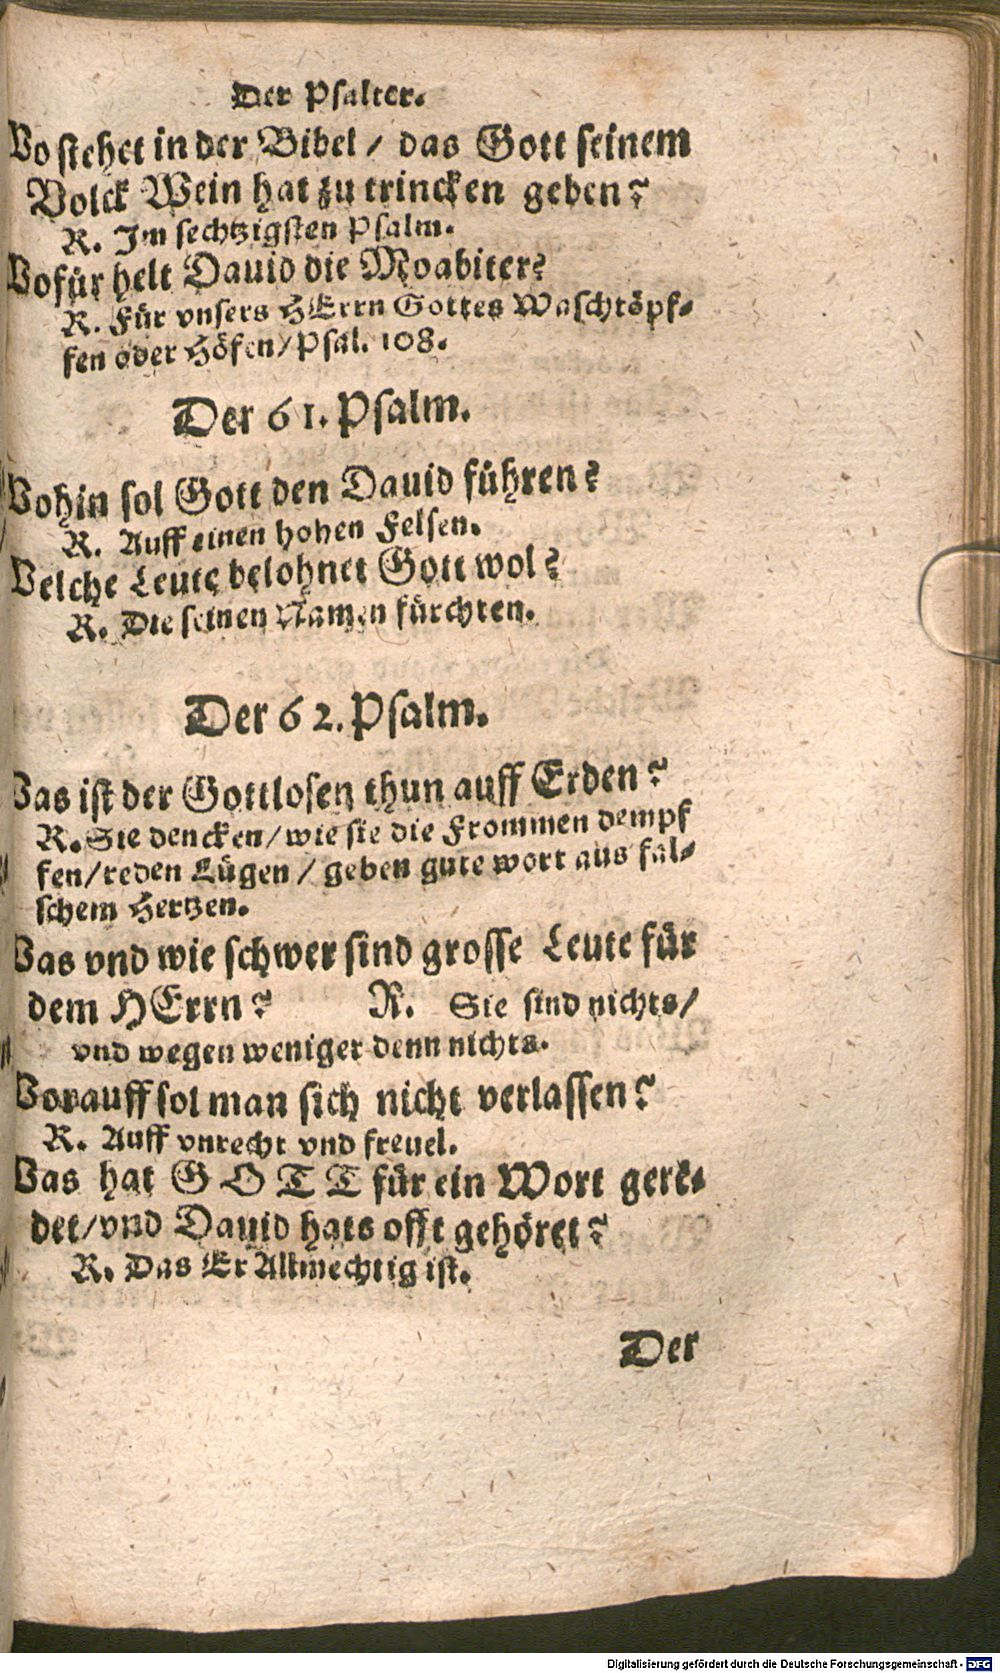 Der Psalter.
Wo stehet in der Bibel / das Gott seinem
Volck Wein hat zu trincken geben?
R. Im sechtzigsten Psalm.
Wofür helt Dauid die Moabiter?
R. Für vnsers HErrn Gottes Waschtöpf-
fen oder Höfen / Psal. 108.
Der 61. Psalm.
Wohin sol Gott den Dauid führen?
R. Auff einen hohen Felsen.
Welche Leute belohnet Gott wol?
R. Die seinen Namen fürchten.
Der 62. Psalm.
Was ist der Gottlosen thun auff Erden?
R. Sie dencken / wie sie die Frommen dempf
fen / reden Lügen / geben gute wort aus fal-
schem Hertzen.
Was vnd wie schwer sind grosse Leute für
dem HErrn? R. Sie sind nichts /
vnd wegen weniger denn nichts.
Worauff sol man sich nicht verlassen?
R. Auff vnrecht vnd freuel.
Was hat GOTT für ein Wort gere-
det / vnd Dauid hats offt gehöret?
R. Das Er Allmechtig ist.
Der
Digitalisierung gefördert durch die Deutsche Forschungsgemeinschaft - DFG